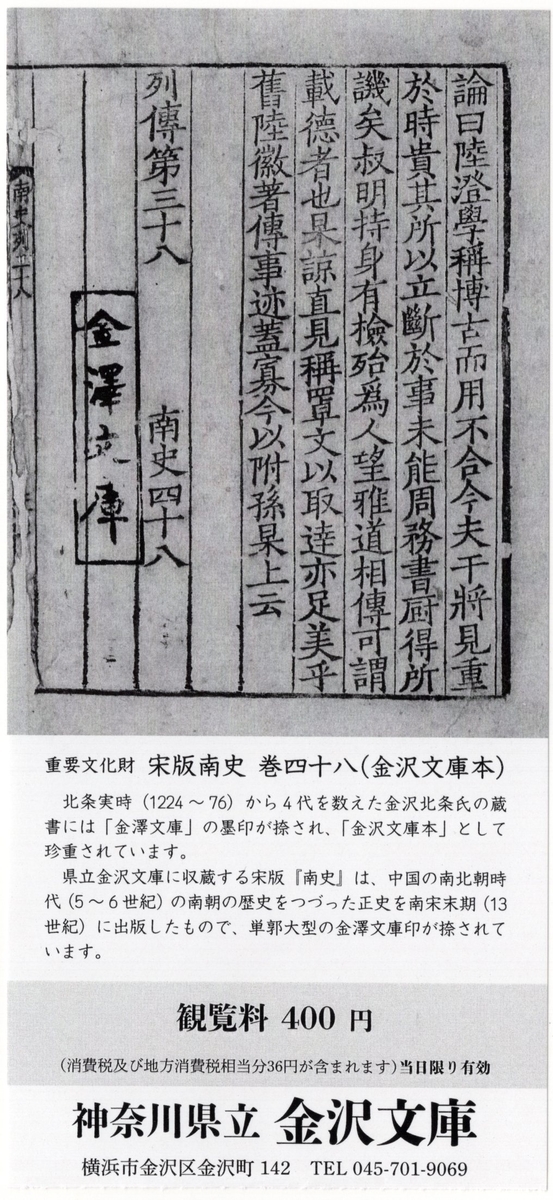 論曰陸澄學稱博古而用不合今夫干將見重
於時貴其所以立斷於事未能周務書厨得所
譏矣叔明持身有檢殆為人望雅道相傳可謂
載德者也杲諒直見稱罩文以取達亦足美乎
舊陸徽著傳事迹蓋寡今以附孫杲上云
列傳第三十八 南史四十八
金澤文庫
重要文化財 宋版南史 巻四十八(金沢文庫本)
北条実時(1224〜76)から4代を数えた金沢北条氏の蔵
書には「金澤文庫」の墨印が捺され、「金沢文庫本」として
珍重されています。
県立金沢文庫に収蔵する宋版『南史』は、中国の南北朝時
代(5〜6世紀)の南朝の歴史をつづった正史を南宋末期(13
世紀)に出版したもので、単郭大型の金澤文庫印が捺されて
います。
観覧料 400 円
(消費税及び地方消費税相当分36円が含まれます)当日限り有効
神奈川県立 金沢文庫
横浜市金沢区金沢町 142 TEL 045-701-9069